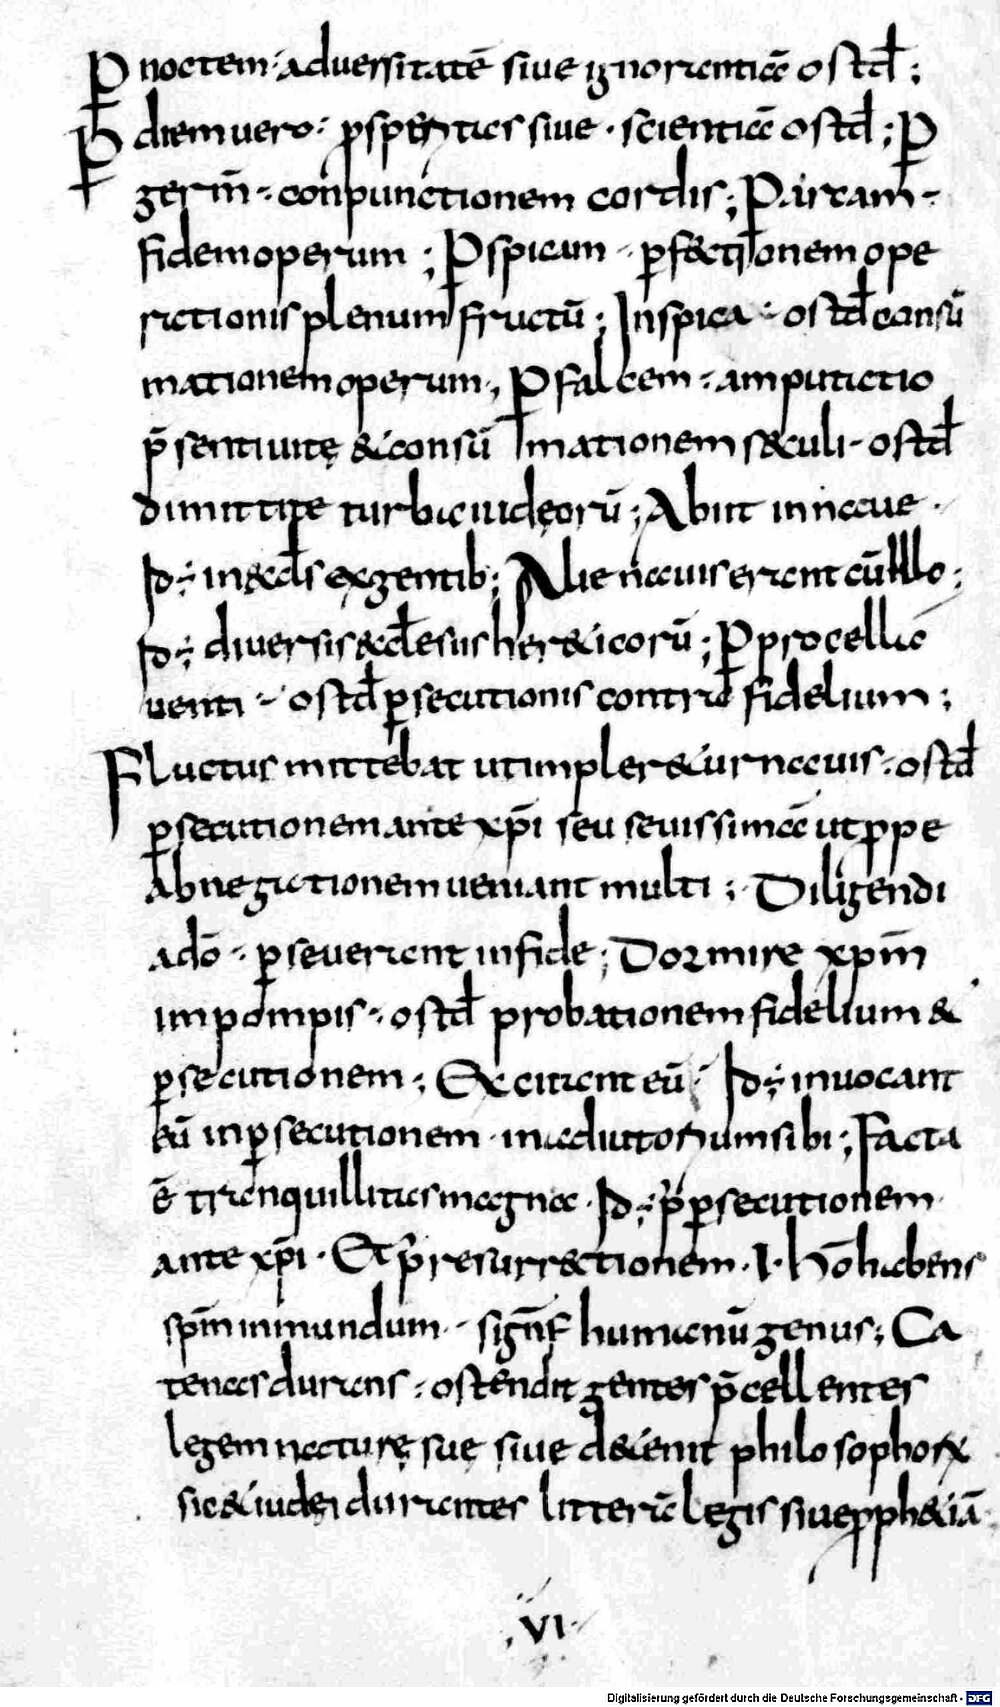 P noctem · adversitatē sive ignorantiā ostd̄ ;
P diem vero · psperitas sive · scientiā ostd̄ ; P
germ̄ · conpunctionem cordis ; P aristam ·
fidem operum ; P spicam · pfectionem ope
rationis plenum fructū ; In spica · ostd̄ consū
mationem operum · P falcem · amputatio
p̄sentivitę & consū mationem sęculi · ostd̄
dimittite turba iudęorū ; Abiit in nave ·
Id · in æcl̄s ex gentib ; Alie naves erant cū illo ;
Id · diversis æcclesiis her&icorū ; P procella
venti · ostd̄ psecutionis contra fidelium ;
Fluctus mittebat ut impler&ur navis · ostd̄
psecutionem ante xp̄i seu sevissima ut pppe
abnegationem veniant multi ; Diligendi
a dō · pseverant in fide ; Dormire xpm̄
im pompis · ostd̄ probationem fidelium &
psecutionem ; Excitant eū · Id · invocant
eū in psecutionem · in adiutorium sibi ; Facta
ē tranquillitas magna · Id · p̄ psecutionem
ante xp̄i · Et p̄ resurr&ctionem · I · hō habens
spm̄ inmundum · sign̄f humanū genus ; Ca
tenas durans · ostendit gentes p̄cellentes
legem naturę suę sive d&enit philosophorx
sic & iudęi durantes litterā legis sive pph&iā
·VI·
Digitalisierung gefördert durch die Deutsche Forschungsgemeinschaft - DFG